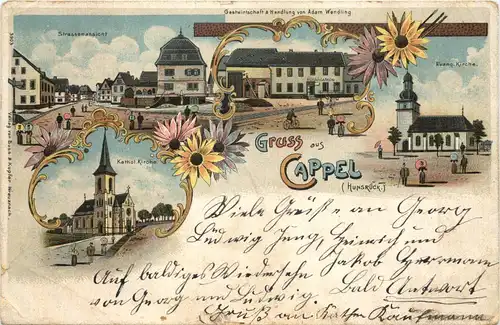 Gastwirtschaft & Handlung von Adam Wendling
Strassenansicht
Evang. Kirche.
Gruss aus
Cappel
(Hunsrück.)
Kathol. Kirche
3903
Viele Grüße an Georg
Ludwig Jung, Heinrich und
Jakob
Auf baldiges Wiedersehn
Bald Antwort
von Georg und Ludwig.
Gruß an Käther Kaufmann